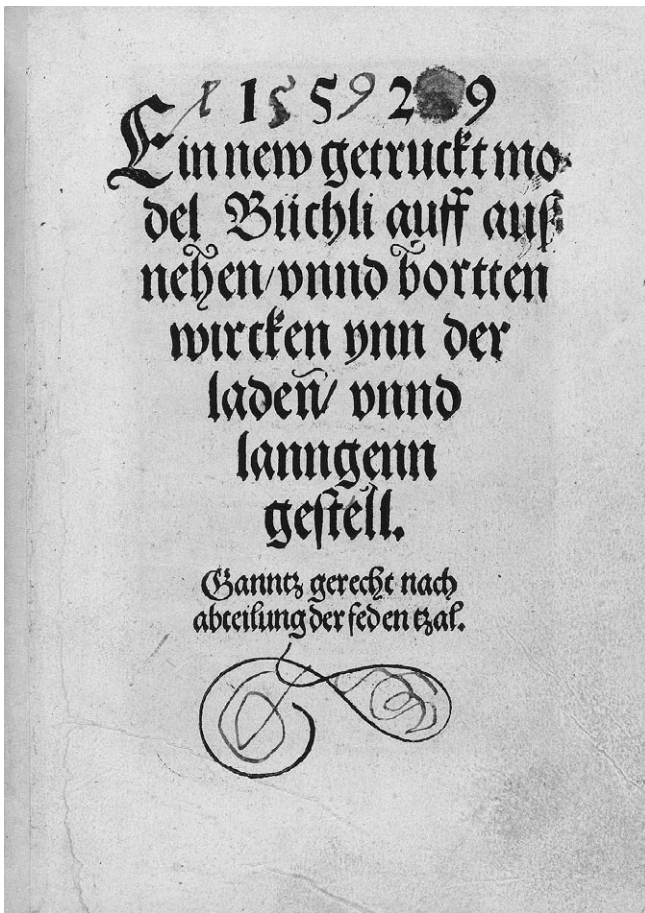 1 5 5 9 2 9
Ein new getruckt mo⸗
del Büchli auff auß
nehen/vnnd bortten
wircken ynn der
ladeñ/ vnnd
lanngenn
gestell.
Ganntz gerecht nach
abteilung der feden tzal.